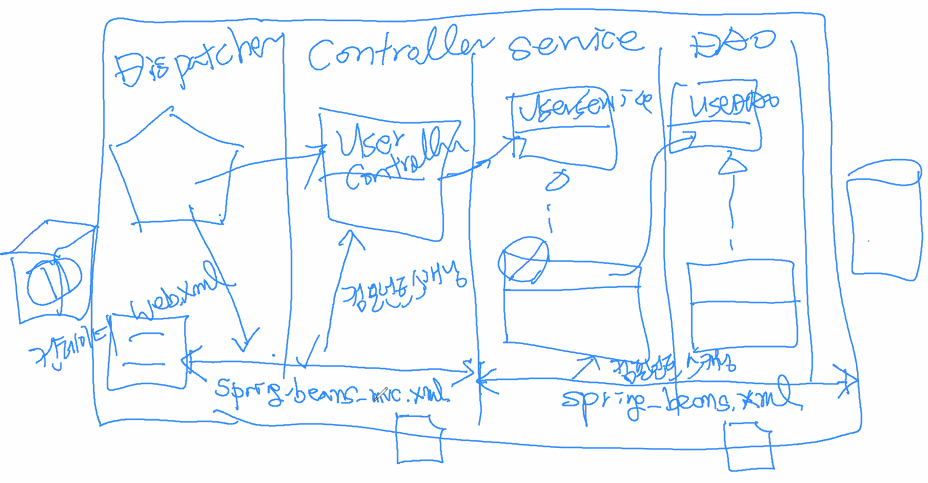 Dispatcher
Controller
Service
DAO
User
Controller
Userservice
UserDAO
web.xml
spring-beans_mvc.xml
spring_beans.xml